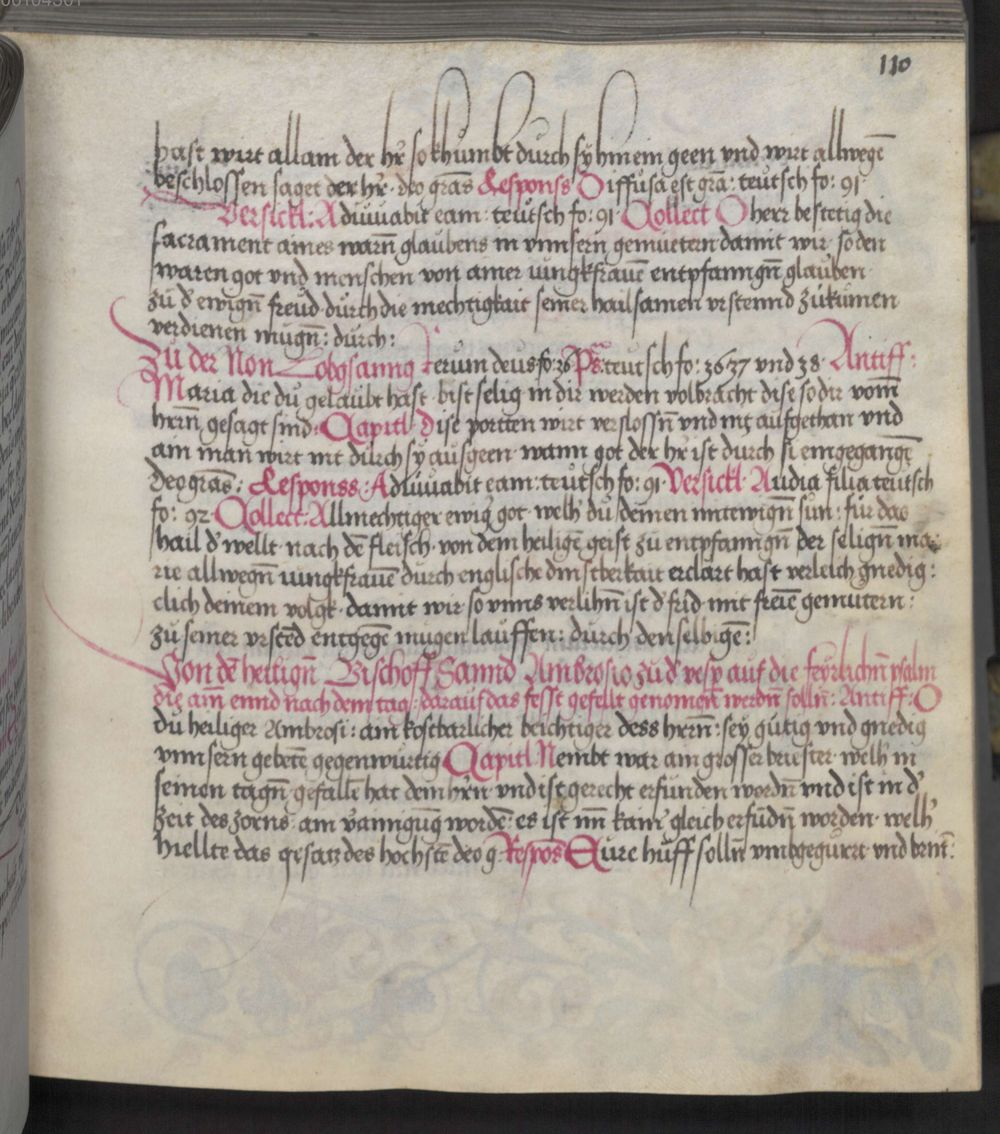 110
hast wirt allain der hr̄ so khumbt durch sy hinein geen vnd wirt allwegē
beschlossen saget der hr̄ · deo gr̄as Responss Diffusa est gr̄a : teutsch fo: 91 ·
Versickl: Adiuuabit eam : teutsch fo: 91 · Collect O herr bestetig die
sacrament aines warn̄ glaubens in vnnsern gemuetern damit wir · so den
waren got vnd menschen von ainer iungkfrauē entpfanngn̄ glauben ·
zu d' ewign̄ freud · durch die mechtigkait seiner hailsamen vrstennd zukumen
verdienen mugn̄ : durch :
Zu der Non Lobgsanng Rerum deus fo: 36 Ps: teutsch fo: 36 37 vnd 38 · Antiff:
Maria die du gelaubt hast · bist selig in dir werden volbracht dise so dir vom̄
herrn̄ gesagt sind: Capitl Dise portten wirt verslossn̄ vnd nit aufgethan vnd
ain man wirt nit durch sy ausgeen · wann got der hr̄ ist durch si eingegangē
Deo gr̄as : Responss : Adiuuabit eam : teutsch fo: 91 · Versickl · Audia filia teutsch
fo: 92 · Collect: Allmechtiger ewig' got · welh du deinen mitewign̄ sun : für das
hail d' wellt · nach dē fleisch · von dem heiligē geist zu entpfanngn̄ der selign̄ ma:
rie allwegn̄ iungkfrauē durch englische dinstberkait erclart hast verleich gnedig:
clich deinem volgk · damit wir · so vnns verlihn̄ ist d' frid mit freiē gemutern :
zu seiner vrstēd entgegē mugen lauffen : durch denselbigē :
Von dē heilign̄ Bischoff Sannd Ambrosio zu d' vesp auf die feyrlichn̄ psalm
die am̄ ennd nach dem tag : darauf das fesst gefellt genomen̄ werdn̄ solln̄ : Antiff: O
du heiliger Ambrosi : ain kostbarlicher beichtiger dess hrrn̄ : sey gütig vnd gnedig
vnnsern gebetē gegenwürtig Capitl Nembt war ain grosser briester · welh' in
seinen tagn̄ gefallē hat dem hr̄n vnd ist gerecht erfunden wordn̄ vnd ist in d'
zeit des zorns · ain v'anngung wordē : es ist im̄ kain' gleich erfūdn̄ worden · welh'
hiellte das gesatz des hochstē deo g · Respos Eure huff solln̄ vmbgegurtt vnd brin̄: